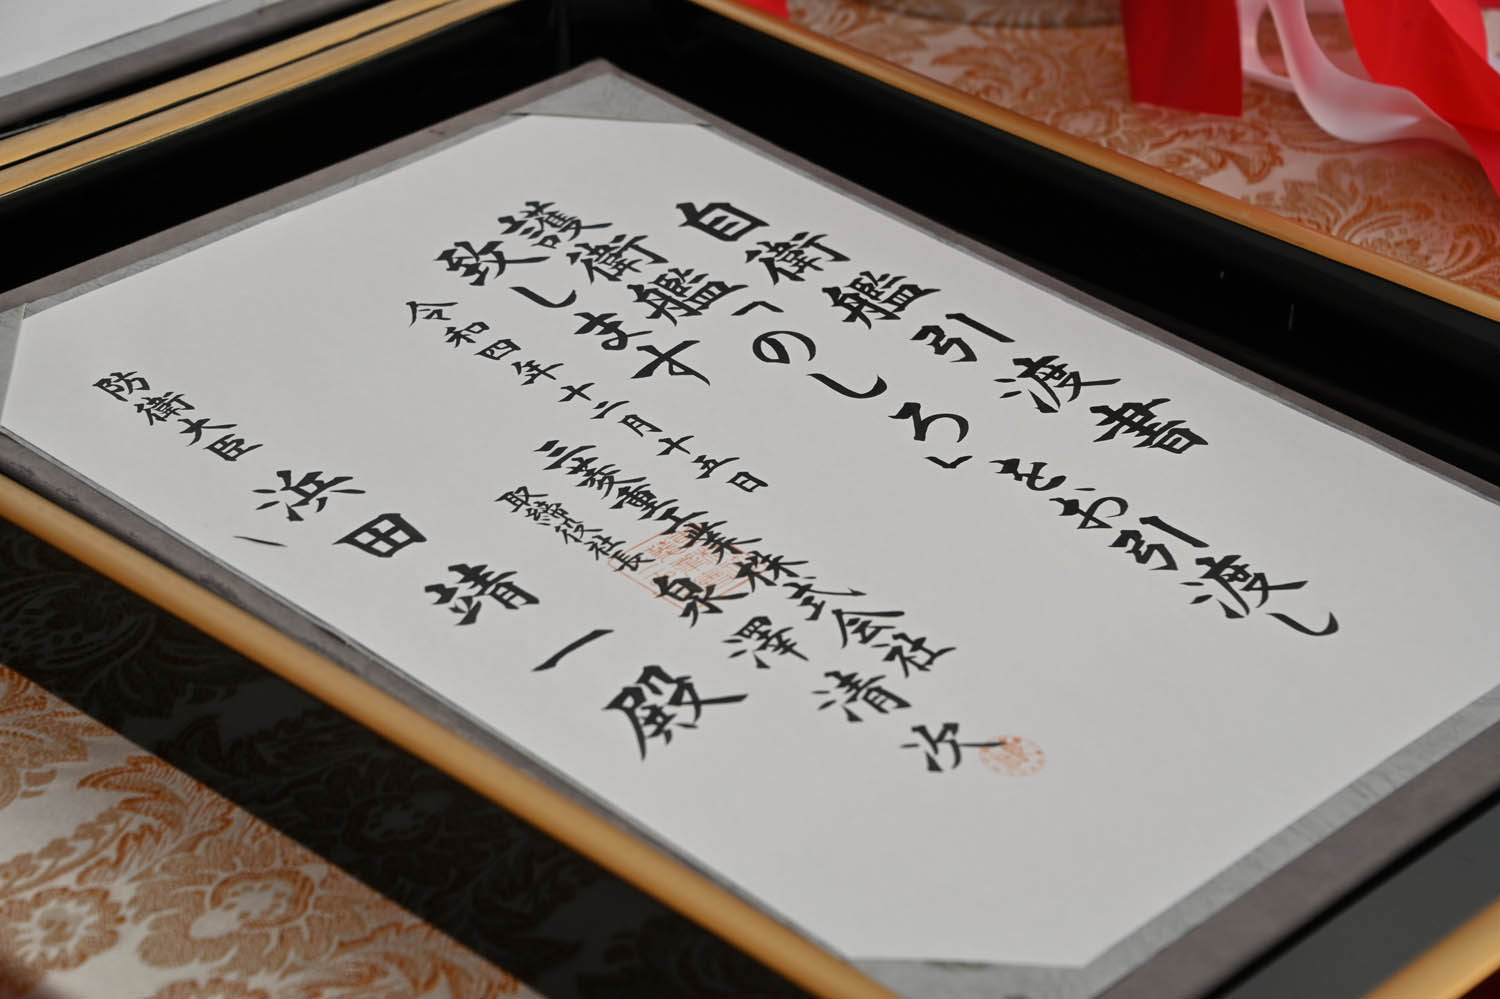 自衛艦引渡書
護衛艦「のしろ」をお引渡し
致します
令和四年十二月十五日
三菱重工業株式会社
取締役社長 泉澤清次
防衛大臣 浜田靖一殿